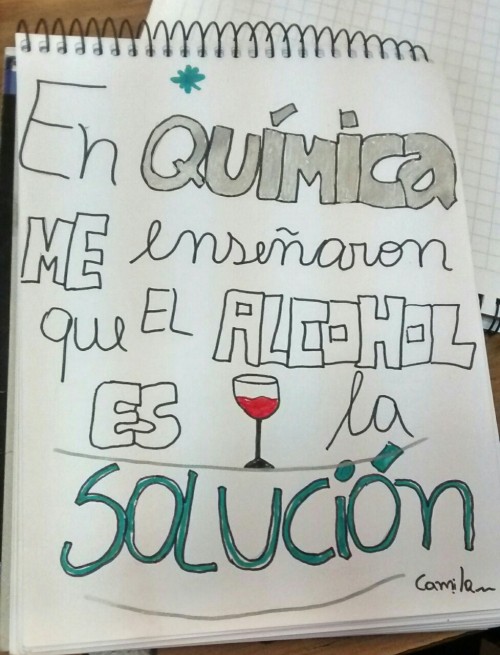 En QUÍMICA
ME enseñaron
que EL ALCOHOL
ES la
SOLUCIÓN
Camila